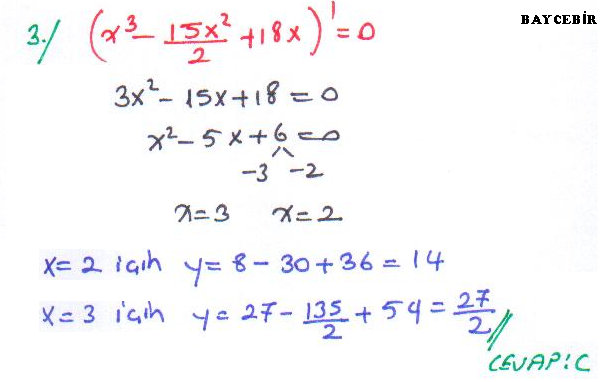 BAYCEBİR
3./ (x³ - 15x²/2 + 18x)' = 0
3x² - 15x + 18 = 0
x² - 5x + 6 = 0
-3 -2
x = 3 x = 2
x = 2 için y = 8 - 30 + 36 = 14
x = 3 için y = 27 - 135/2 + 54 = 27/2 //
CEVAP: C